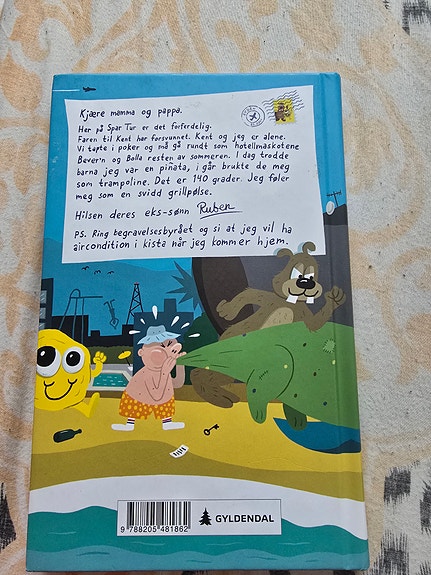 Kjære mamma og pappa.
Her på Spar Tur er det forferdelig.
Faren til Kent har forsvunnet. Kent og jeg er alene.
Vi tapte i poker og må gå rundt som hotellmaskotene
Bever'n og Bolla resten av sommeren. I dag trodde
barna jeg var en pinata, i går brukte de meg
som trampoline. Det er 140 grader. Jeg føler
meg som en svidd grillpølse.
Hilsen deres eks-sønn Ruben
PS. Ring begravelsesbyrået og si at jeg vil ha
aircondition i kista når jeg kommer hjem.
9 788205 481862
GYLDENDAL